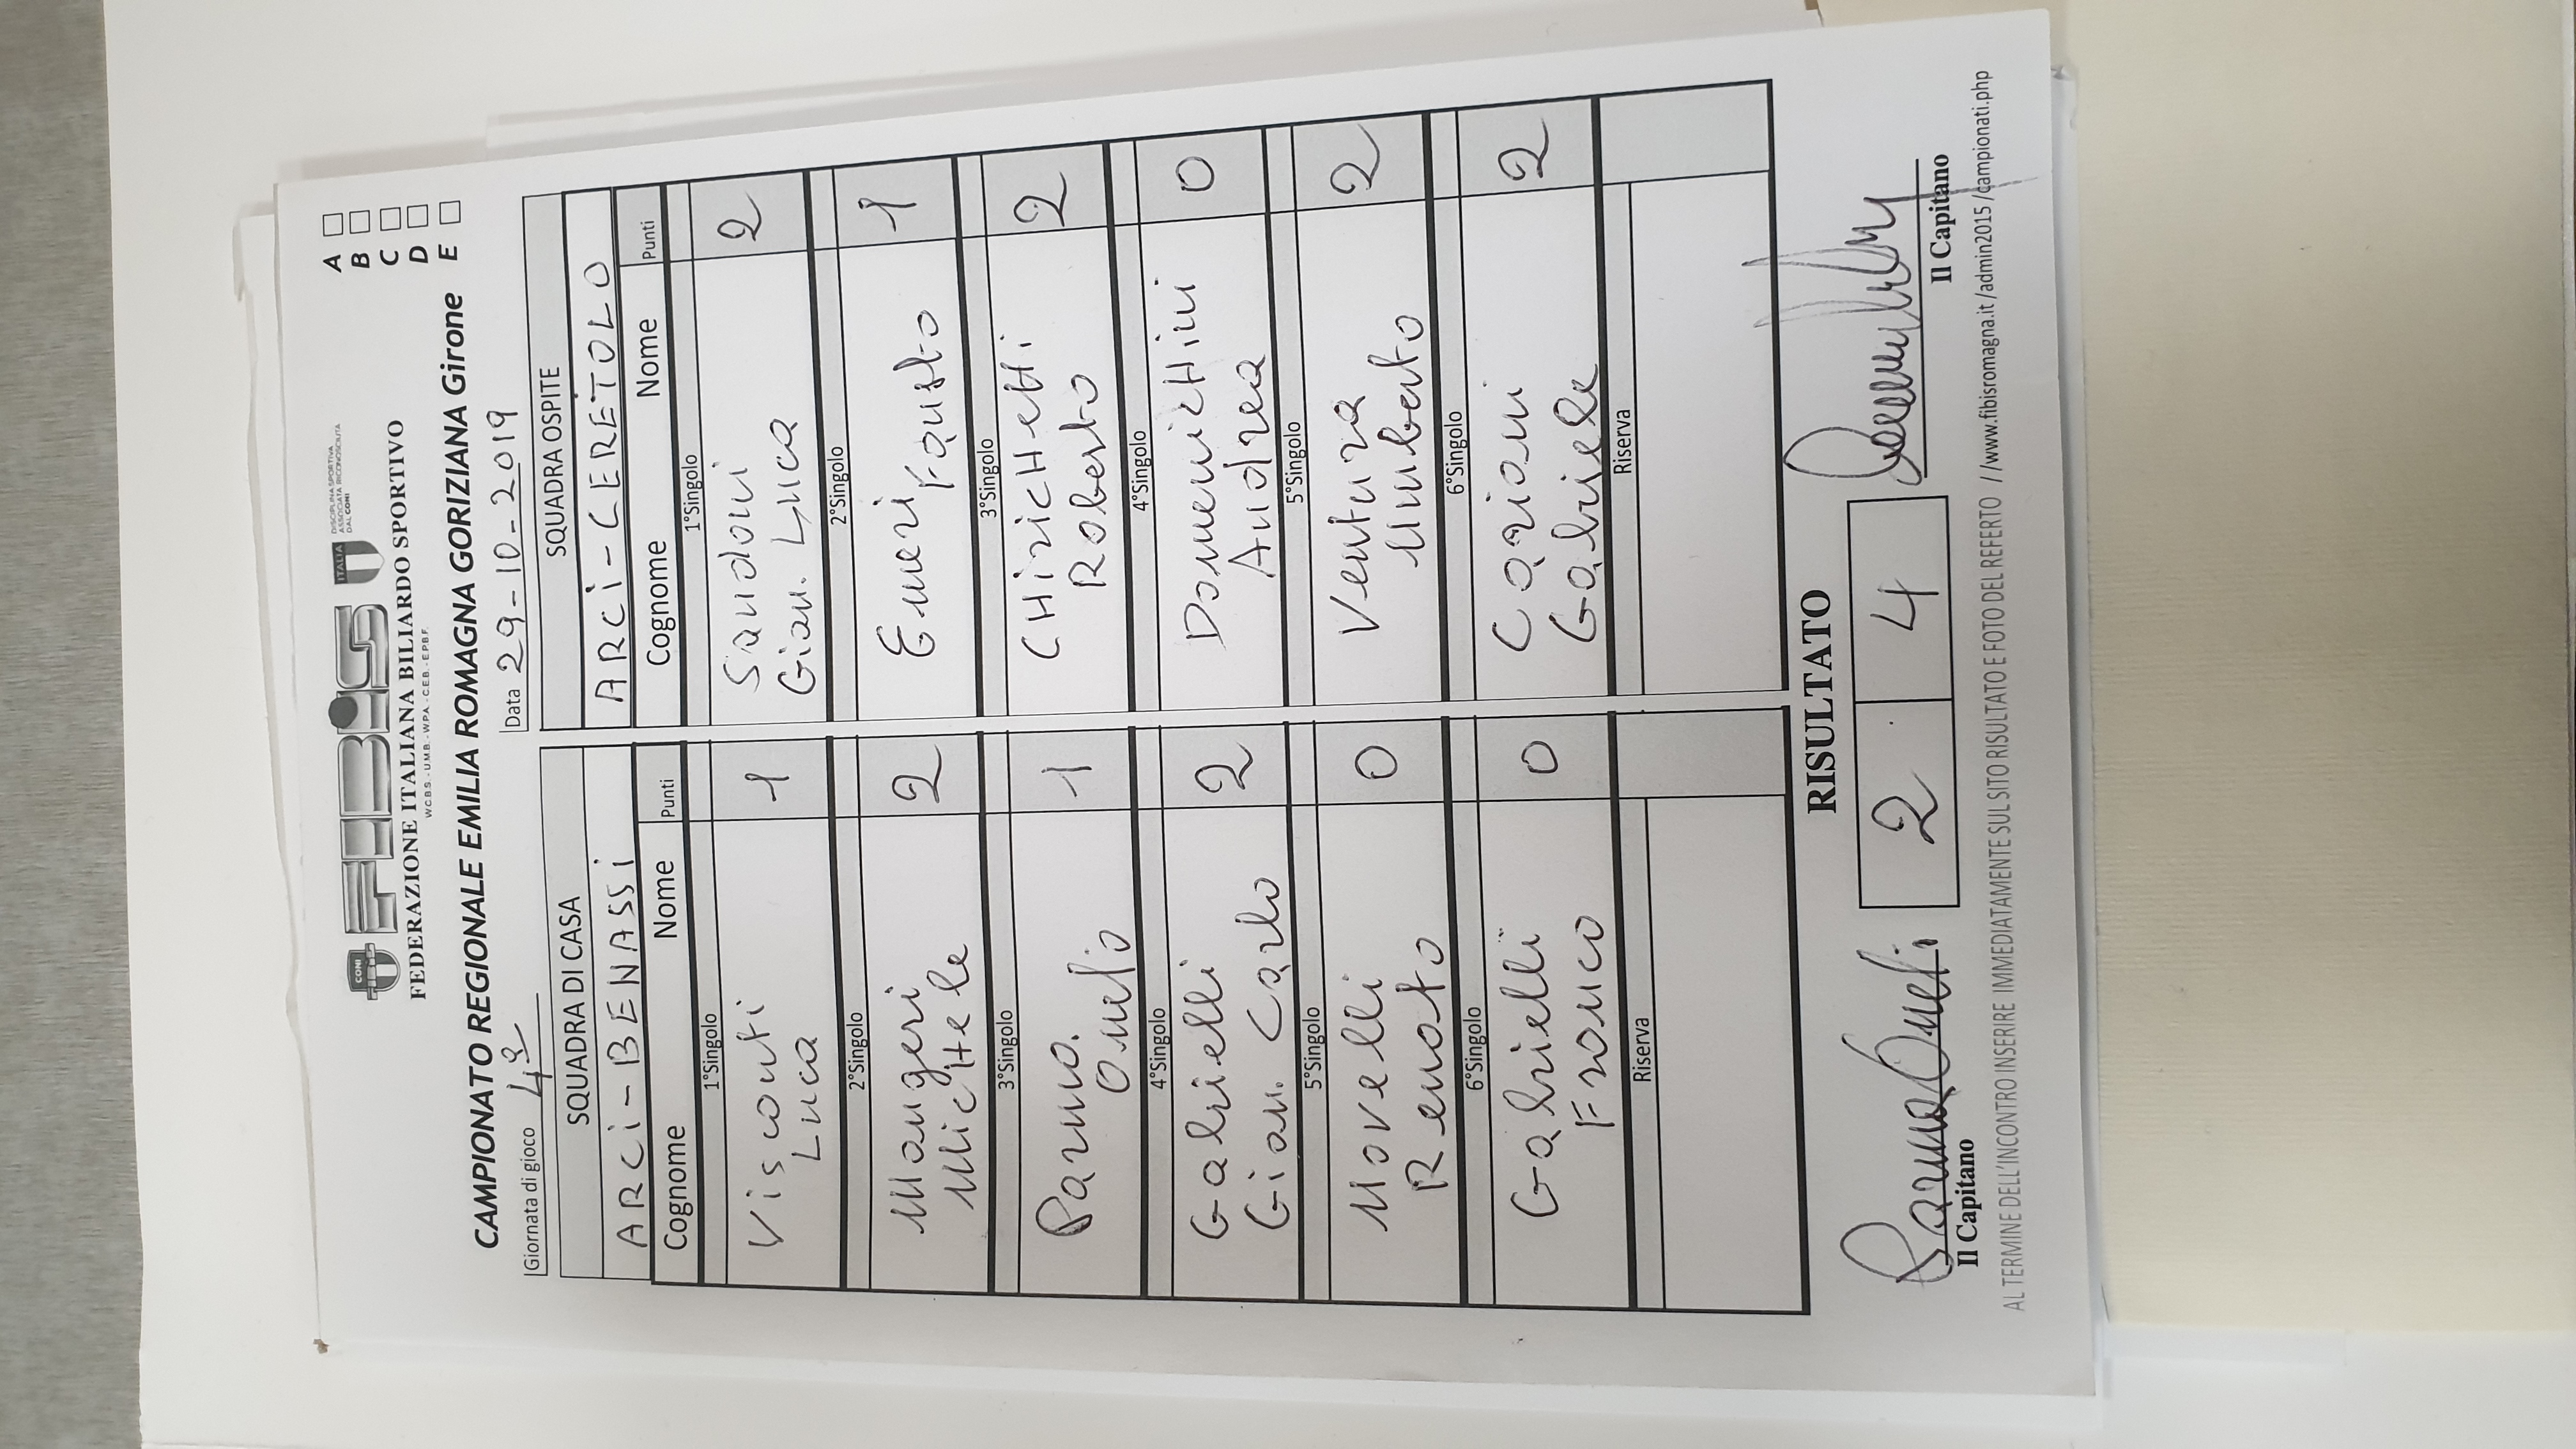 CONI
FIBIS
ITALIA
DISCIPLINA SPORTIVA
ASSOCIATA RICONOSCIUTA
DAL CONI
FEDERAZIONE ITALIANA BILIARDO SPORTIVO
W.C.B.S. - U.M.B. - W.P.A. - C.E.B. - E.P.B.F.
A
B
C
D
E
CAMPIONATO REGIONALE EMILIA ROMAGNA GORIZIANA Girone
Giornata di gioco 4ª
Data 29-10-2019
SQUADRA DI CASA
ARCi-BENASSi
Cognome Nome Punti
1°Singolo
Visconti
Luca 1
2°Singolo
Mangeri
MicHele 2
3°Singolo
Parmo.
Omelio 1
4°Singolo
Gabrielli
Gian. Carlo 2
5°Singolo
Novelli
Renato 0
6°Singolo
Gabrielli
Franco 0
Riserva
SQUADRA OSPITE
ARCi-CERETOLO
Cognome Nome Punti
1°Singolo
Sandoni
Gian. Luca 2
2°Singolo
Emeri
Fausto 1
3°Singolo
CHiricHetti
Roberto 2
4°Singolo
DomenicHini
Andrea 0
5°Singolo
Ventura
Umberto 2
6°Singolo
Cazioni
Gabriele 2
Riserva
RISULTATO
2 4
Il Capitano
Il Capitano
AL TERMINE DELL'INCONTRO INSERIRE IMMEDIATAMENTE SUL SITO RISULTATO E FOTO DEL REFERTO //www.fibisromagna.it /admin2015 /campionati.php